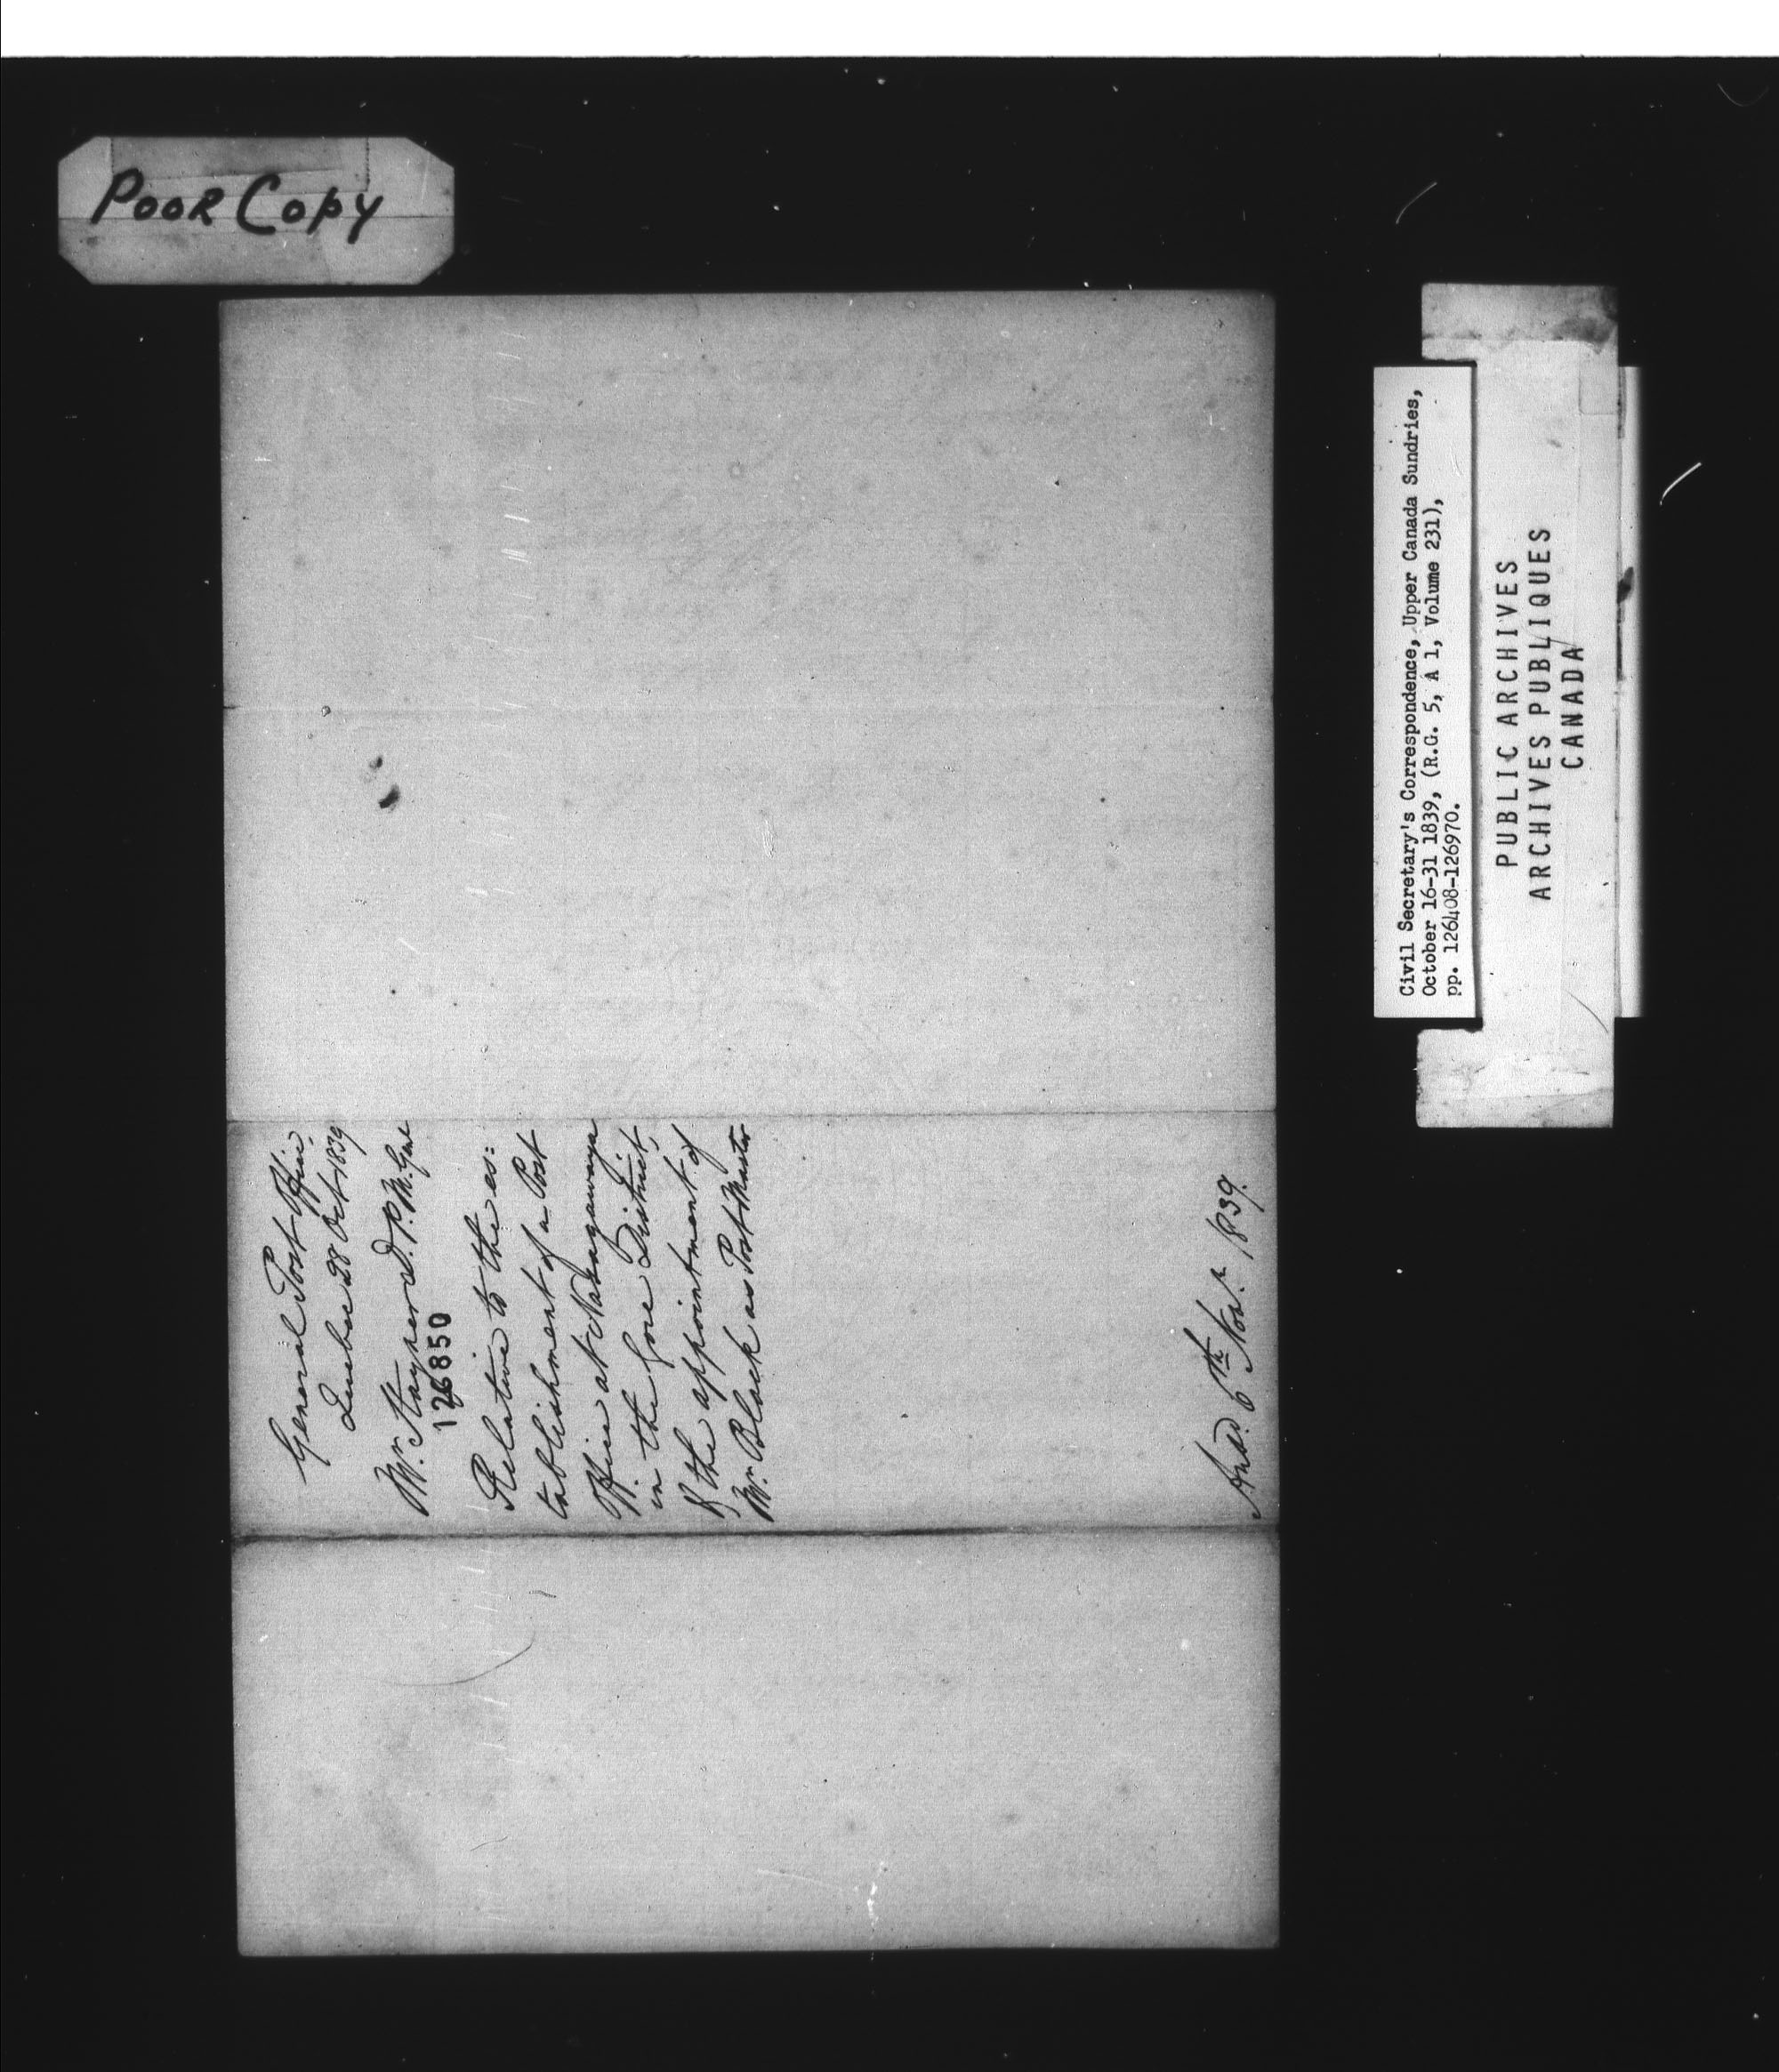 Poor Copy
General Post Office,
Quebec 28 Oct 1839
Mr. Stayner D. P. M. Genl
126850
Relative to the es:
tablishment of a Post
Office at Nassagaweya
in the Gore District,
& the appointment of
Mr. Black as Post Master
Ansd. 6th Novr. 1839.
Civil Secretary's Correspondence, Upper Canada Sundries,
October 16-31 1839, (R.G. 5, A 1, Volume 231),
pp. 126408-126970.
PUBLIC ARCHIVES
ARCHIVES PUBLIQUES
CANADA